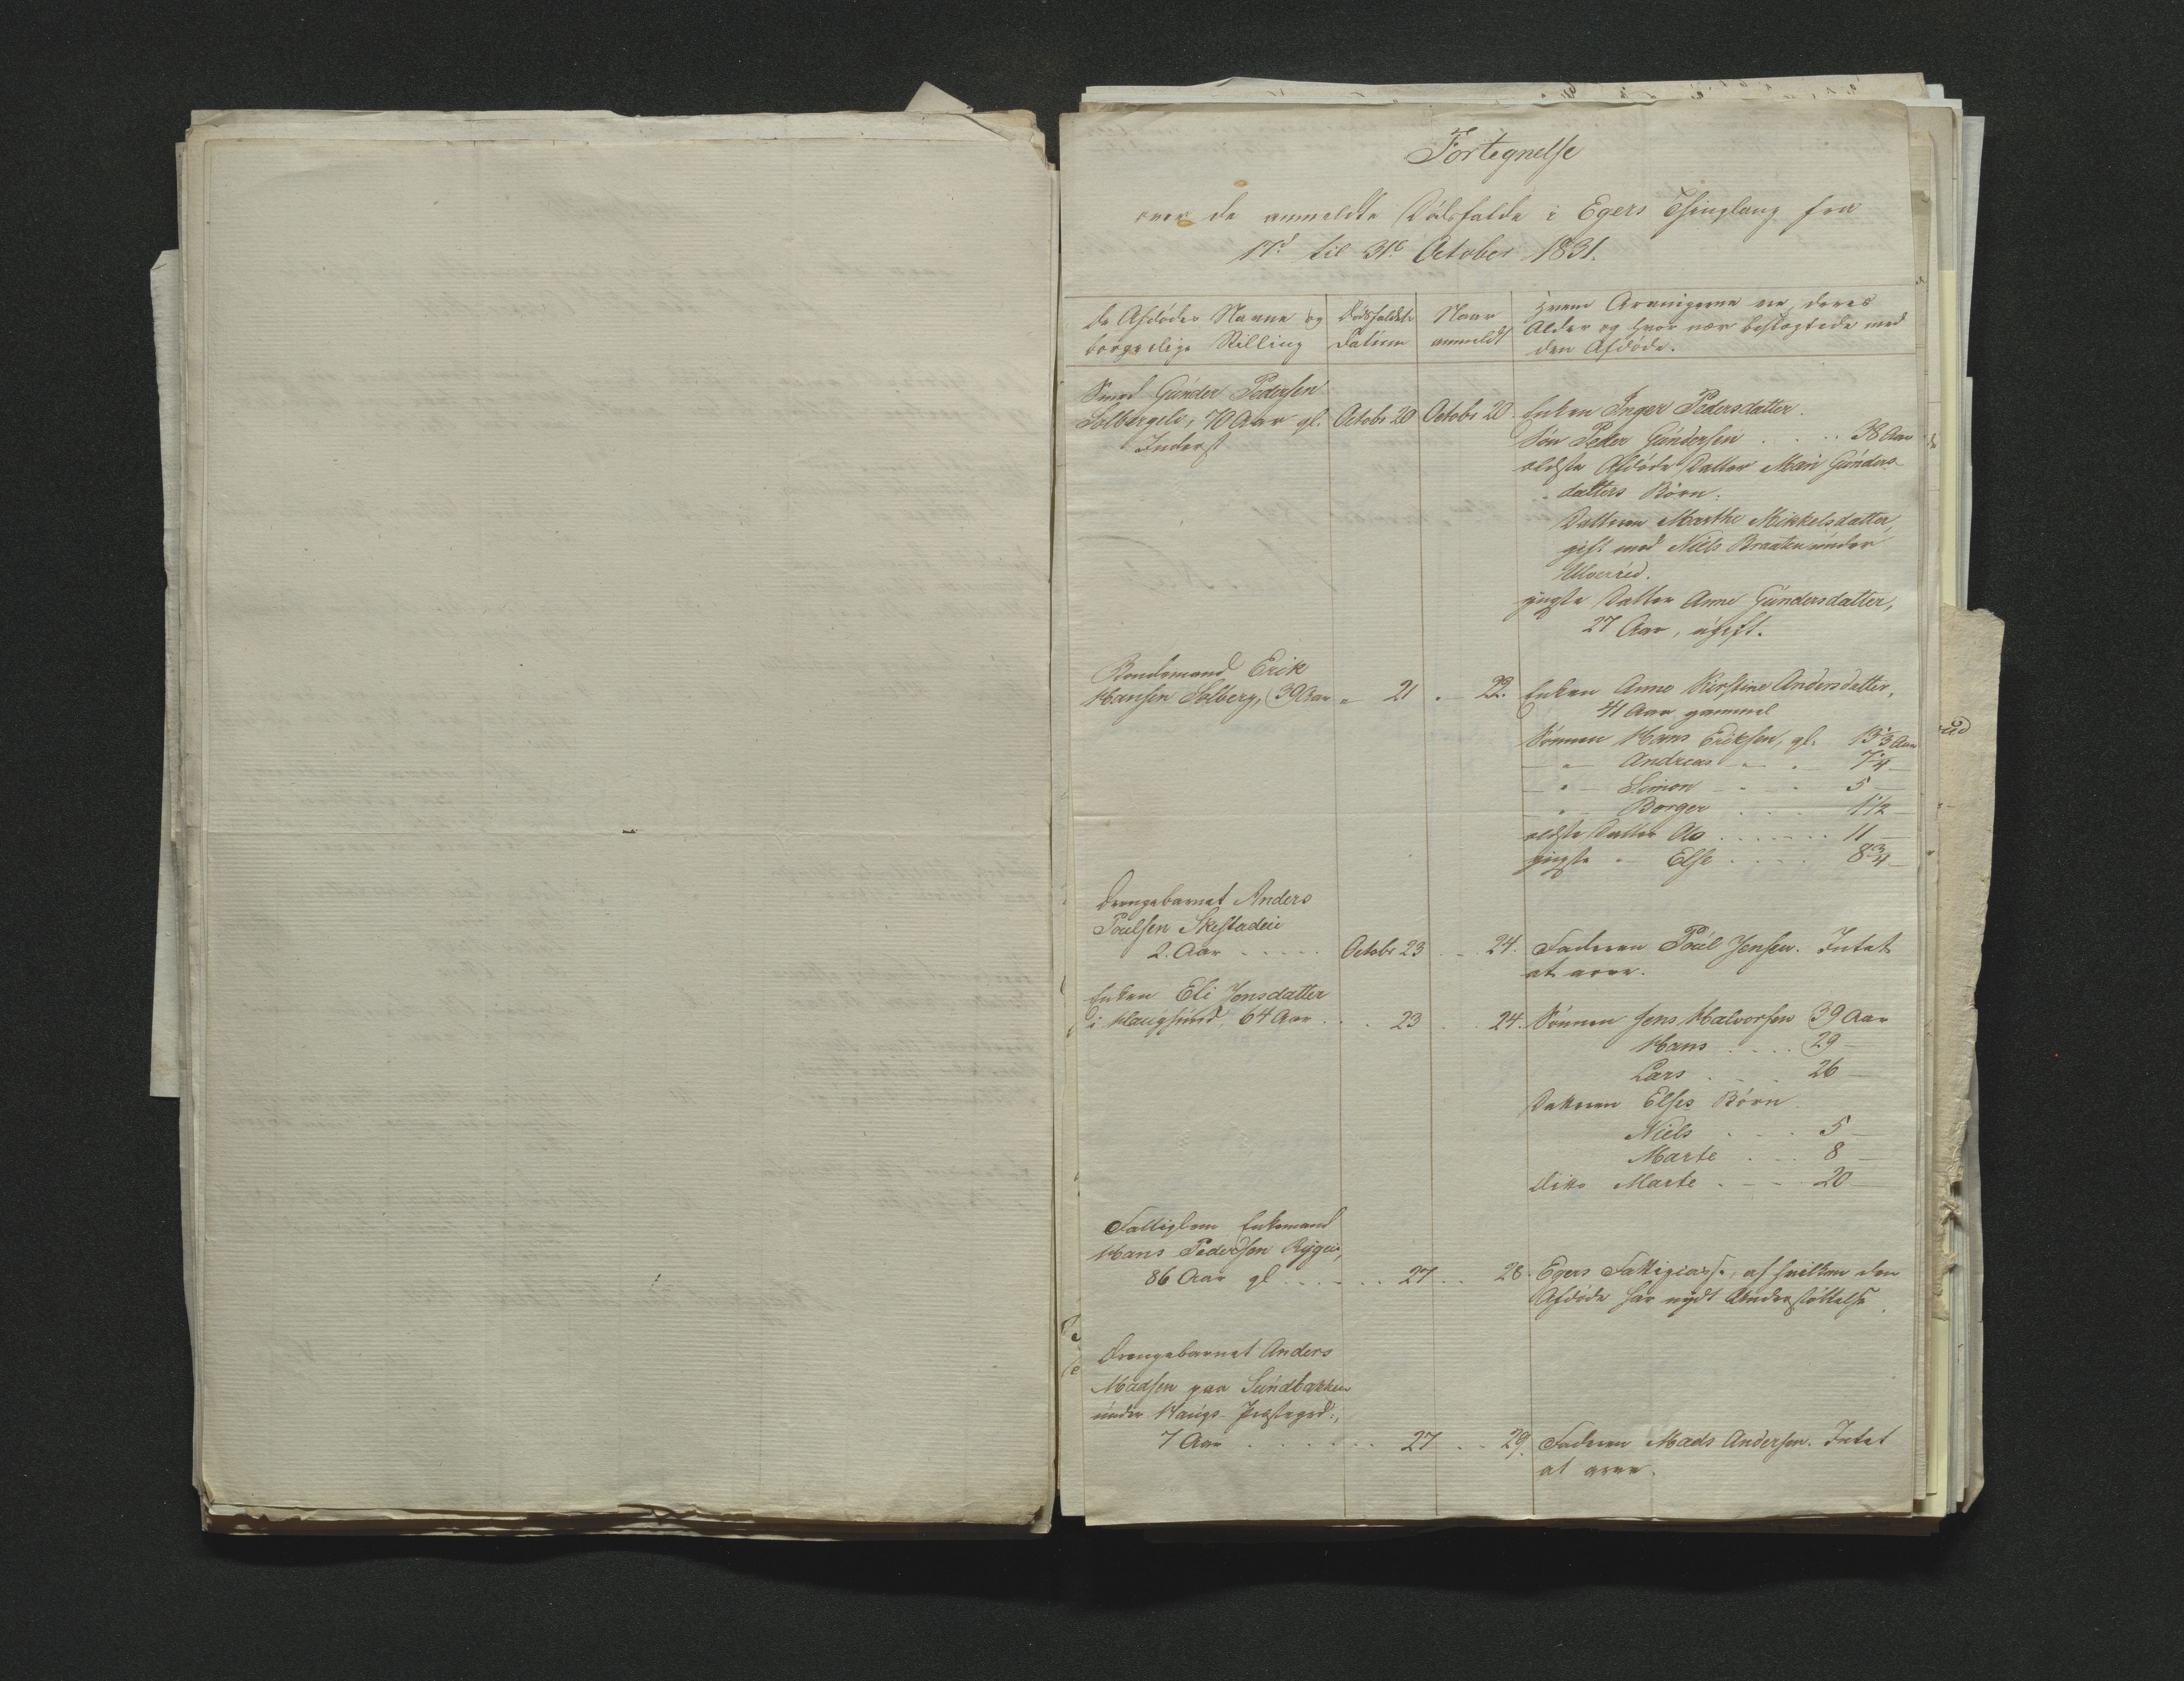 Fortegnelse
over de anmeldte Dødsfalde i Egers Thinglaug fra
17d til 31e October 1831.
De Afdødes Navne og
borgerlige Stilling
Dødsfaldets
Datum
Naar
anmeldt
Hvem Arvingerne ere, deres
Alder og hvor nær beslægtede med
den Afdøde.
Smed Gunder Pedersen
Solbergeie, 70 Aar gl.
Inderst
Octobr 20
Octobr 20.
Enken Inger Pedersdatter.
Søn Peder Gundersen . . . . 38 Aar
ældste Afdøde Datter Mari Gunders-
datters Børn.
Datteren Marthe Mikkelsdatter,
gift med Niels Braaten under
Ulverud.
yngste Datter Anne Gundersdatter,
27 Aar, ugift.
Bondemand Erik
Hansen Solberg, 39 Aar
" 21
" 22.
Enken Anne Kirstine Andersdatter,
41 Aar gammel
Sønnen Hans Eriksen, gl. 13 1/3 Aar
— " — Andreas — " — 7 1/4 —
— " — Simon — . . 5 —
— " — Borger . . . . 1 1/2 —
ældste Datter Ab . . . . . . 11 —
yngste — " — Else . . . . 8 3/4 —
Drengebarnet Anders
Poulsen Skestadeie
2. Aar . . . . .
Octobr 23
. . 24.
Faderen Poul Jensen. Intet
at arve.
Enken Eli Jonsdatter
i Haugsund, 64 Aar .
. . 23
. . 24.
Sønnen Jens Halvorsen 39 Aar
Hans . . . . 29 —
Lars . . . . 26 —
Datteren Elses Børn
Niels . . . . 5 —
Marte . . . 8 —
Ditto Marte . . . . 20 —
Fattiglem Enkemand
Hans Pedersen Rygeie,
86 Aar gl . . . .
. . 27
. . 28.
Egers Fattigcasse, af hvilken den
Afdøde har nydt Understøttelse.
Drengebarnet Anders
Madsen paa Sundbakken
under Haugs Præstegrd:,
7 Aar . . . . .
. . 27
. . 29.
Faderen Mads Andersen. Intet
at arve.